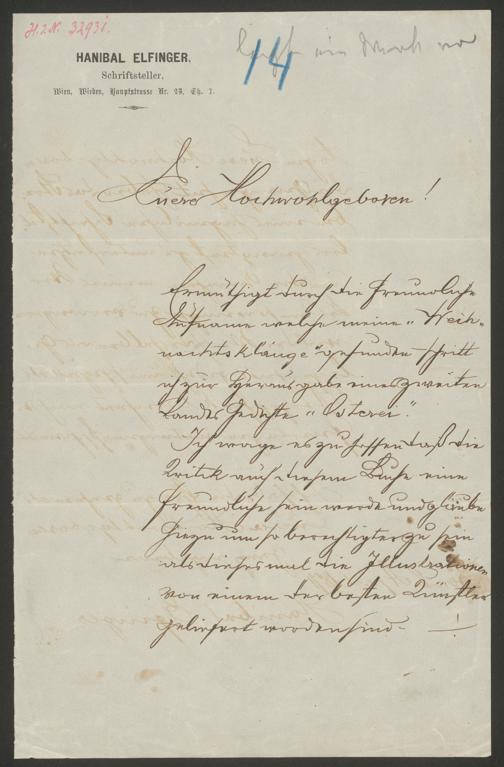 H.I.N. 32931.
14
HANIBAL ELFINGER,
Schriftsteller,
Wien, Wieden, Hauptstrasse Nr. 29, Th. 7.
Euere Hochwohlgeboren!
Ermuthigt durch die freundliche
Aufname welche meine „Weih-
nachtsklänge" gefunden schritt
ich zur Herausgabe eines zweiten
Bandes Gedichte „Osterei".
Ich wage es zu hoffen daß die
Kritik auch diesem Buche eine
freundliche sein werde und glaube
hiezu um so berechtigter zu sein
als dieses mal die Illustrationen
von einem der besten Künstler
geliefert worden sind. — !